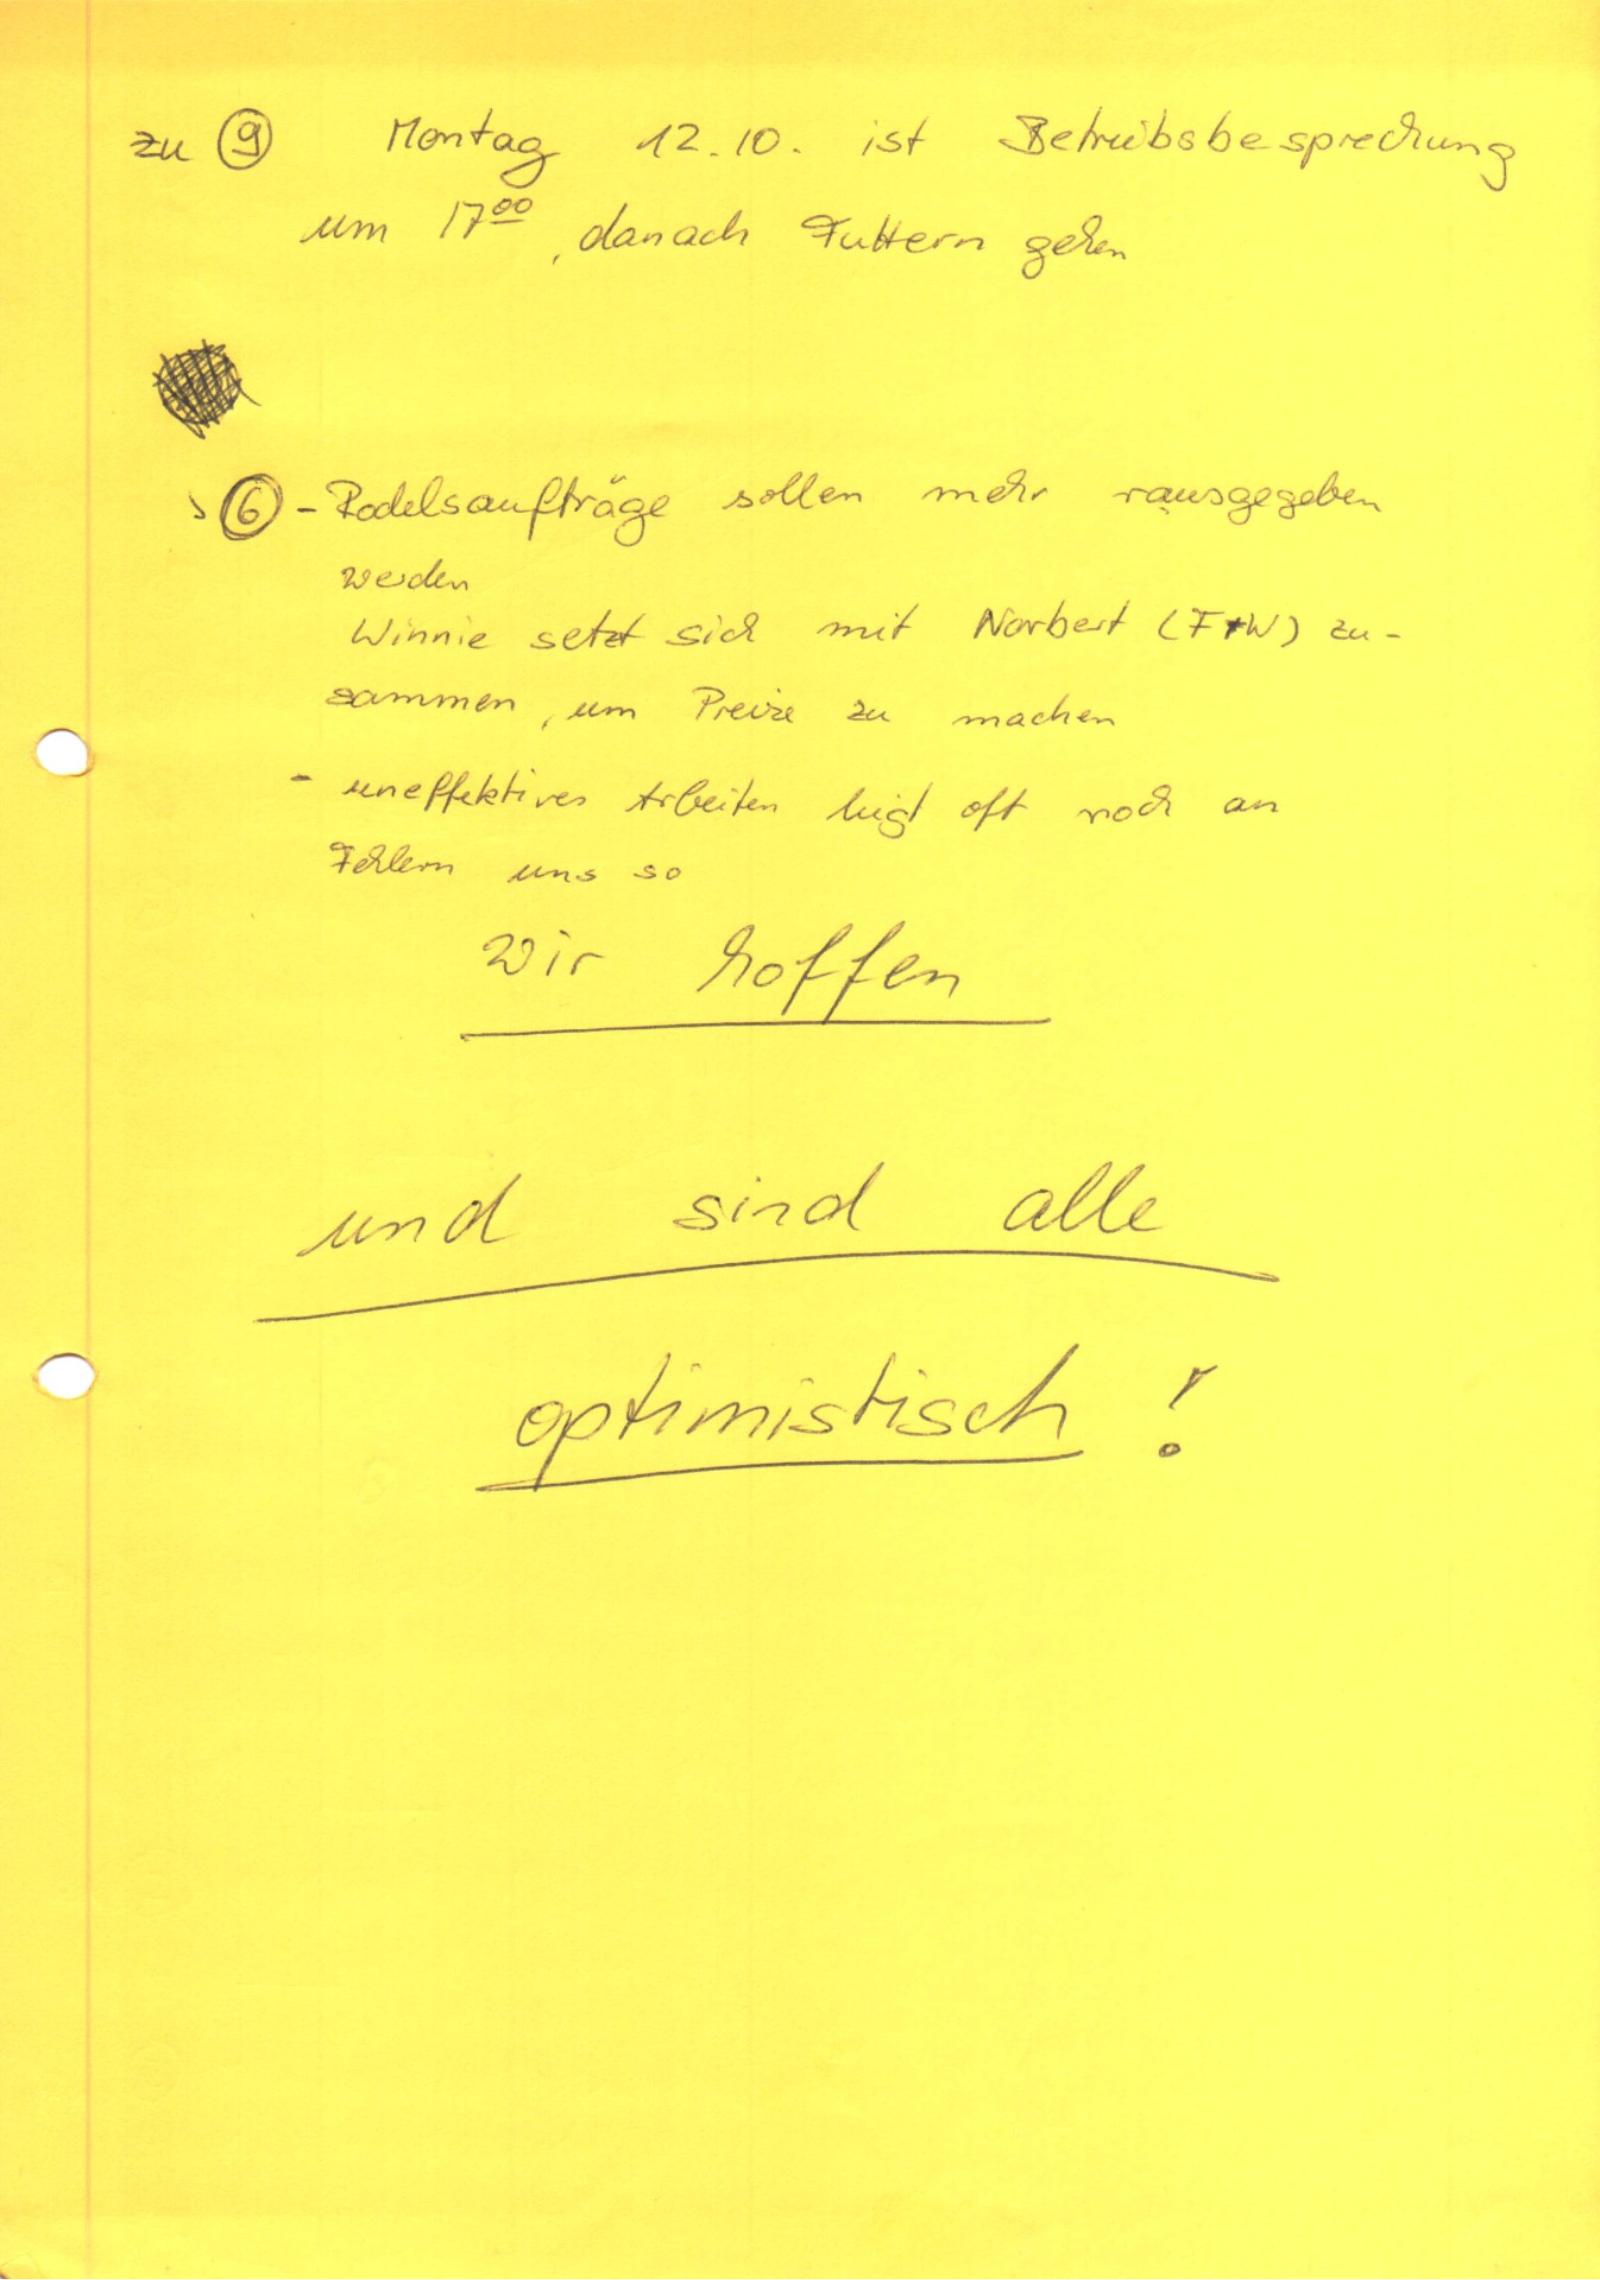 zu 9 Montag 12.10. ist Betriebsbesprechung
um 17⁰⁰, danach Futtern gehen
6 - Rodelsaufträge sollen mehr rausgegeben
werden
Winnie setzt sich mit Norbert (F+W) zu-
sammen, um Preise zu machen
- uneffektives Arbeiten liegt oft noch an
Fehlern uns so
wir hoffen
und sind alle
optimistisch!